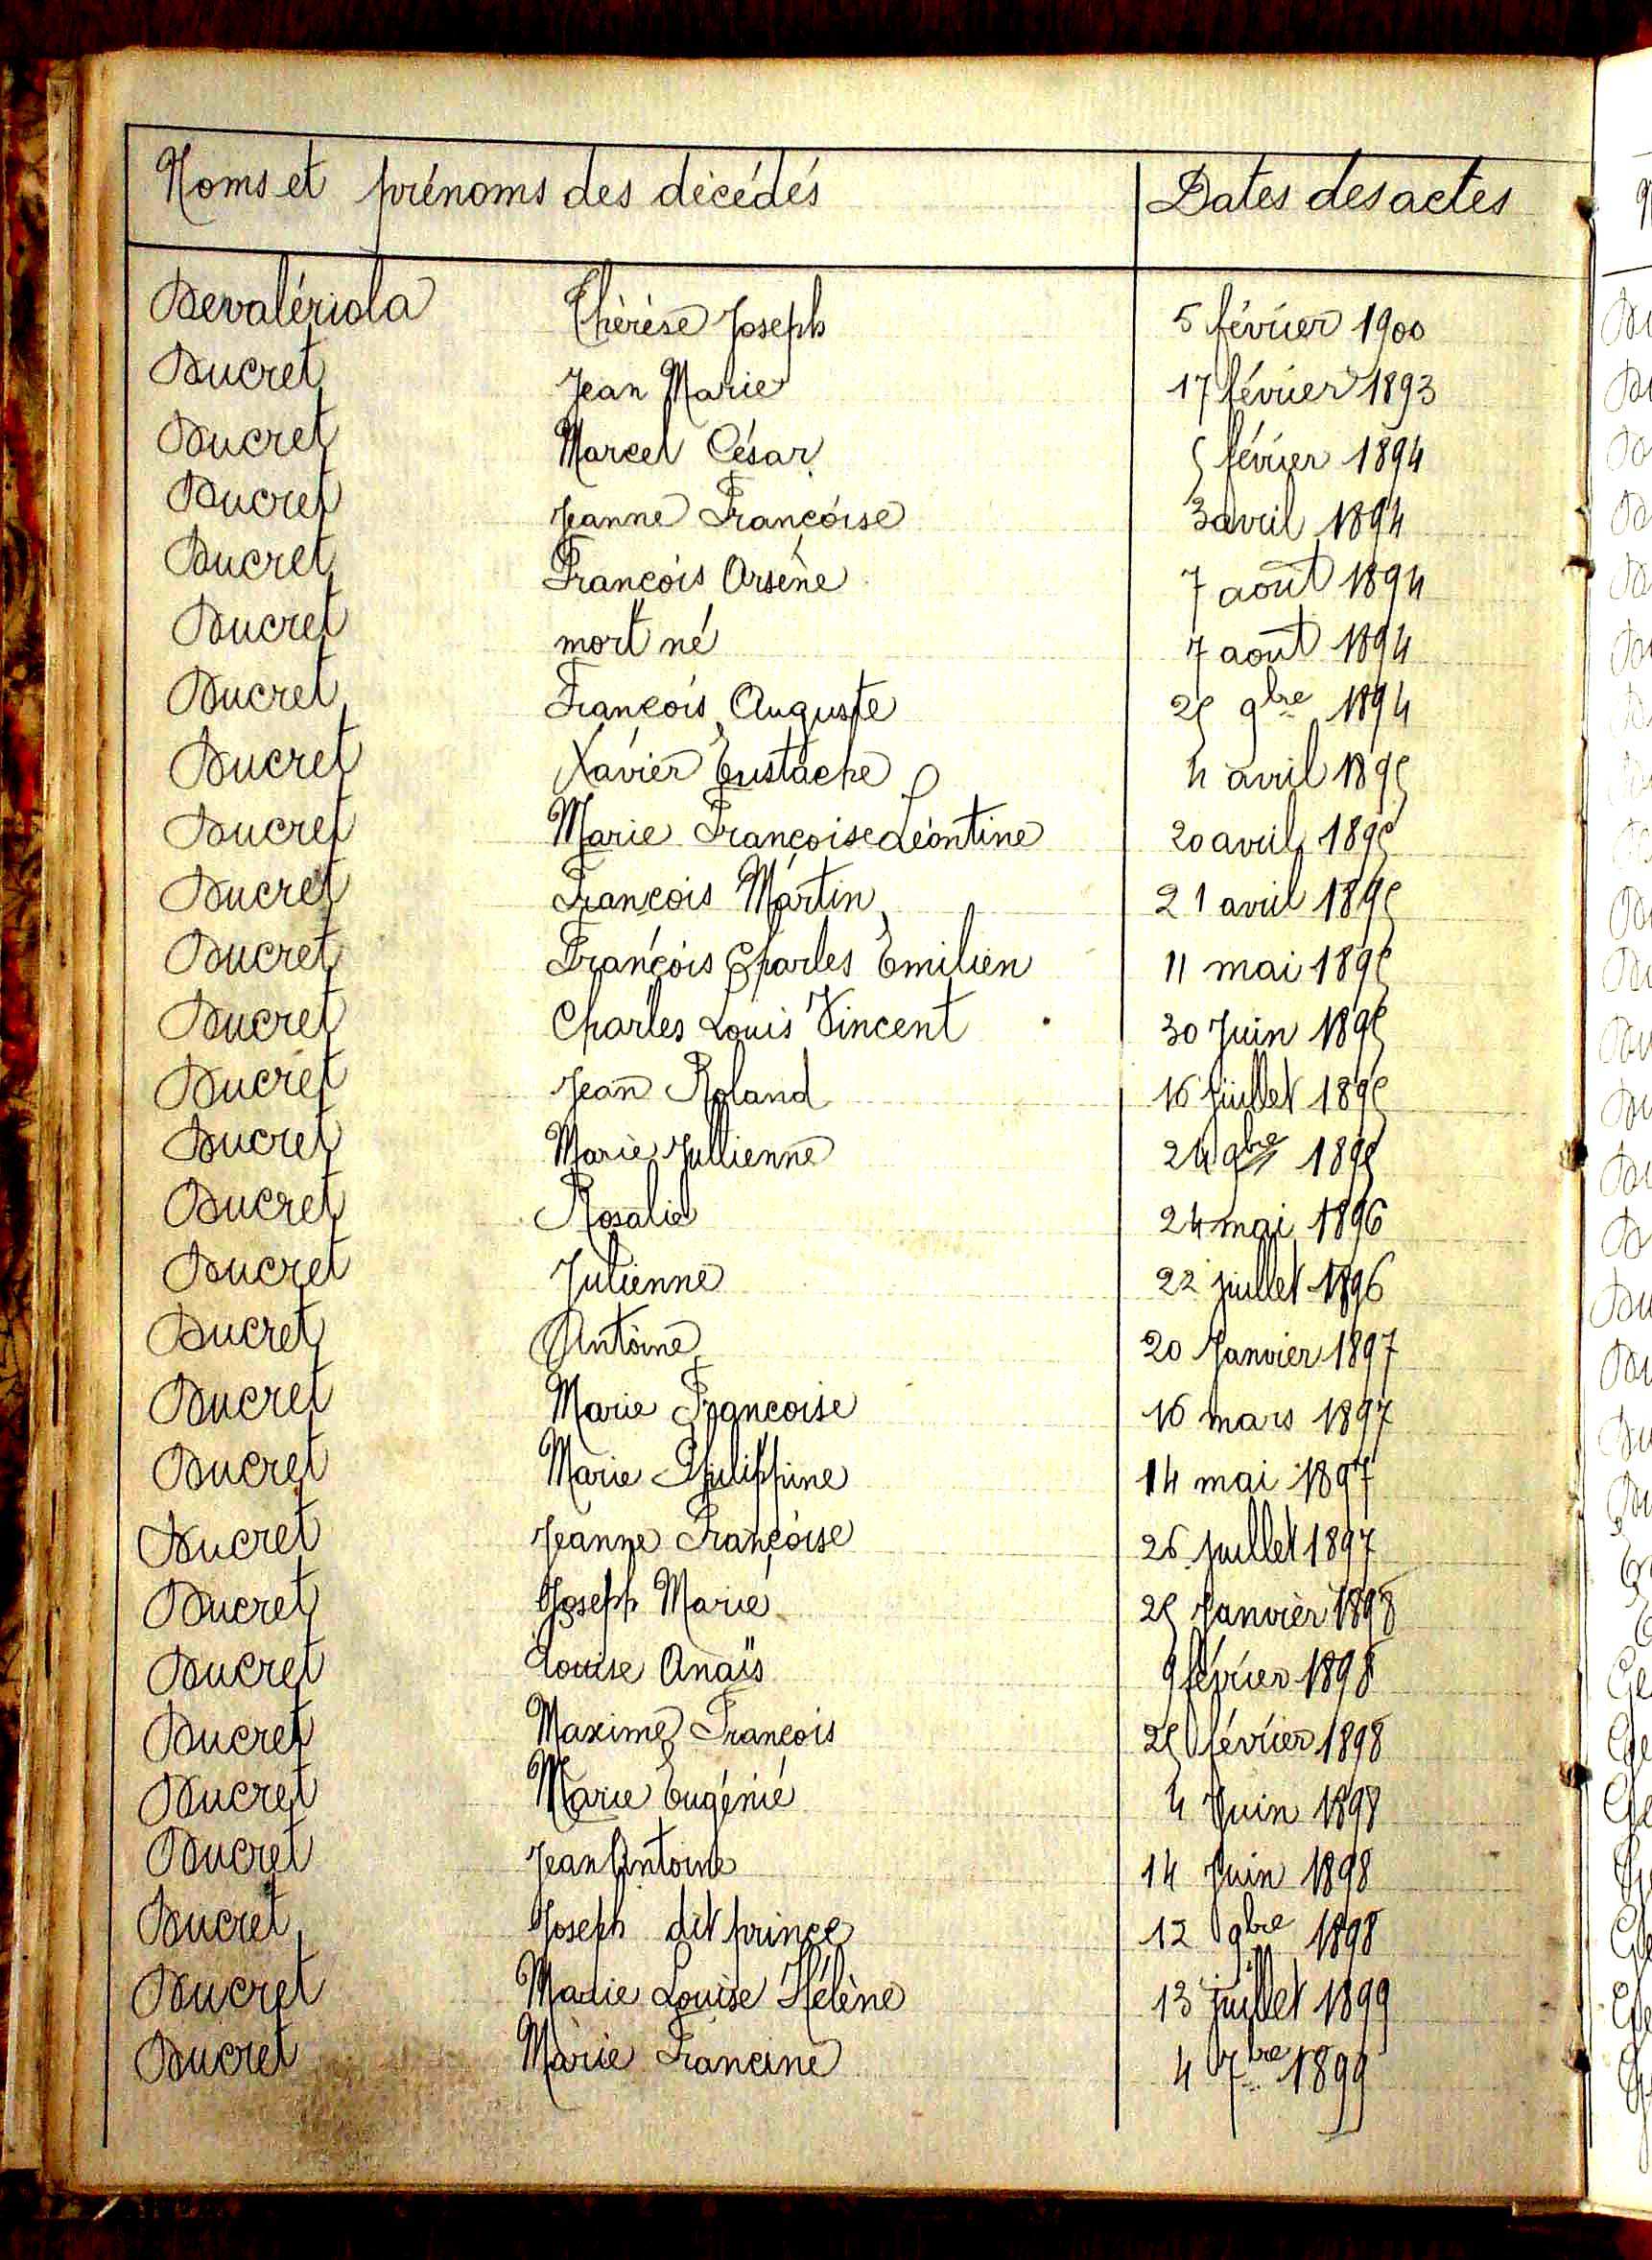 Noms et prénoms des décédés Dates des actes
Devalériola Thérèse Joseph 5 février 1900
Ducret Jean Marie 17 février 1893
Ducret Marcel César 5 février 1894
Ducret Jeanne Françoise 3 avril 1894
Ducret François Arsène 7 août 1894
Ducret mort né 7 août 1894
Ducret François Auguste 25 9bre 1894
Ducret Xavier Eustache 4 avril 1895
Ducret Marie Françoise Léontine 20 avril 1895
Ducret François Martin 21 avril 1895
Ducret François Charles Emilien 11 mai 1895
Ducret Charles Louis Vincent 30 Juin 1895
Ducret Jean Roland 16 juillet 1895
Ducret Marie Jullienne 24 9bre 1895
Ducret Rosalie 24 mai 1896
Ducret Julienne 22 juillet 1896
Ducret Antoine 20 Janvier 1897
Ducret Marie Françoise 16 mars 1897
Ducret Marie Philippine 14 mai 1897
Ducret Jeanne Françoise 26 juillet 1897
Ducret Joseph Marie 25 Janvier 1898
Ducret Louise Anaïs 9 février 1898
Ducret Maxime François 25 février 1898
Ducret Marie Eugénie 4 Juin 1898
Ducret Jean Antoine 14 Juin 1898
Ducret Joseph dit prince 12 9bre 1898
Ducret Marie Louise Hélène 13 juillet 1899
Ducret Marie Francine 4 7bre 1899